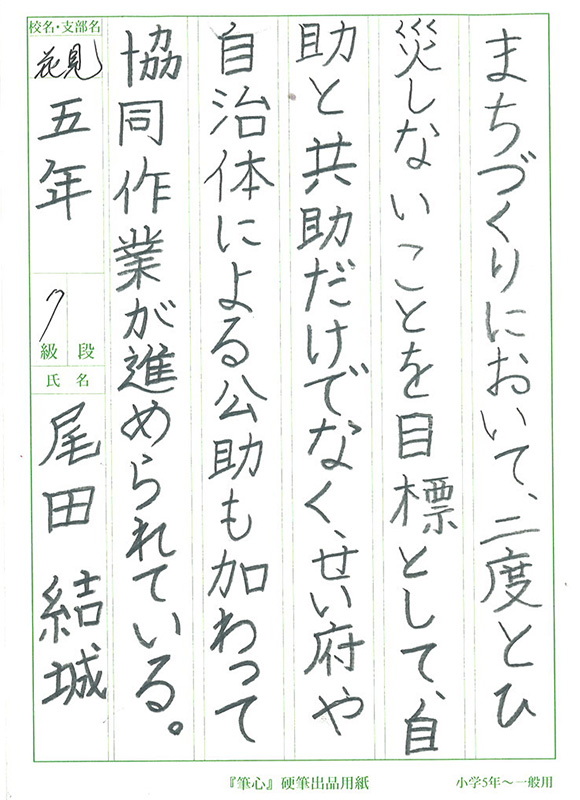 まちづくりにおいて、二度とひ
災しないことを目標として、自
助と共助だけでなく、せい府や
自治体による公助も加わって
協同作業が進められている。
校名・支部名
花見
五年
7
級 段
氏 名
尾田 結城
『筆心』硬筆出品用紙
小学5年～一般用